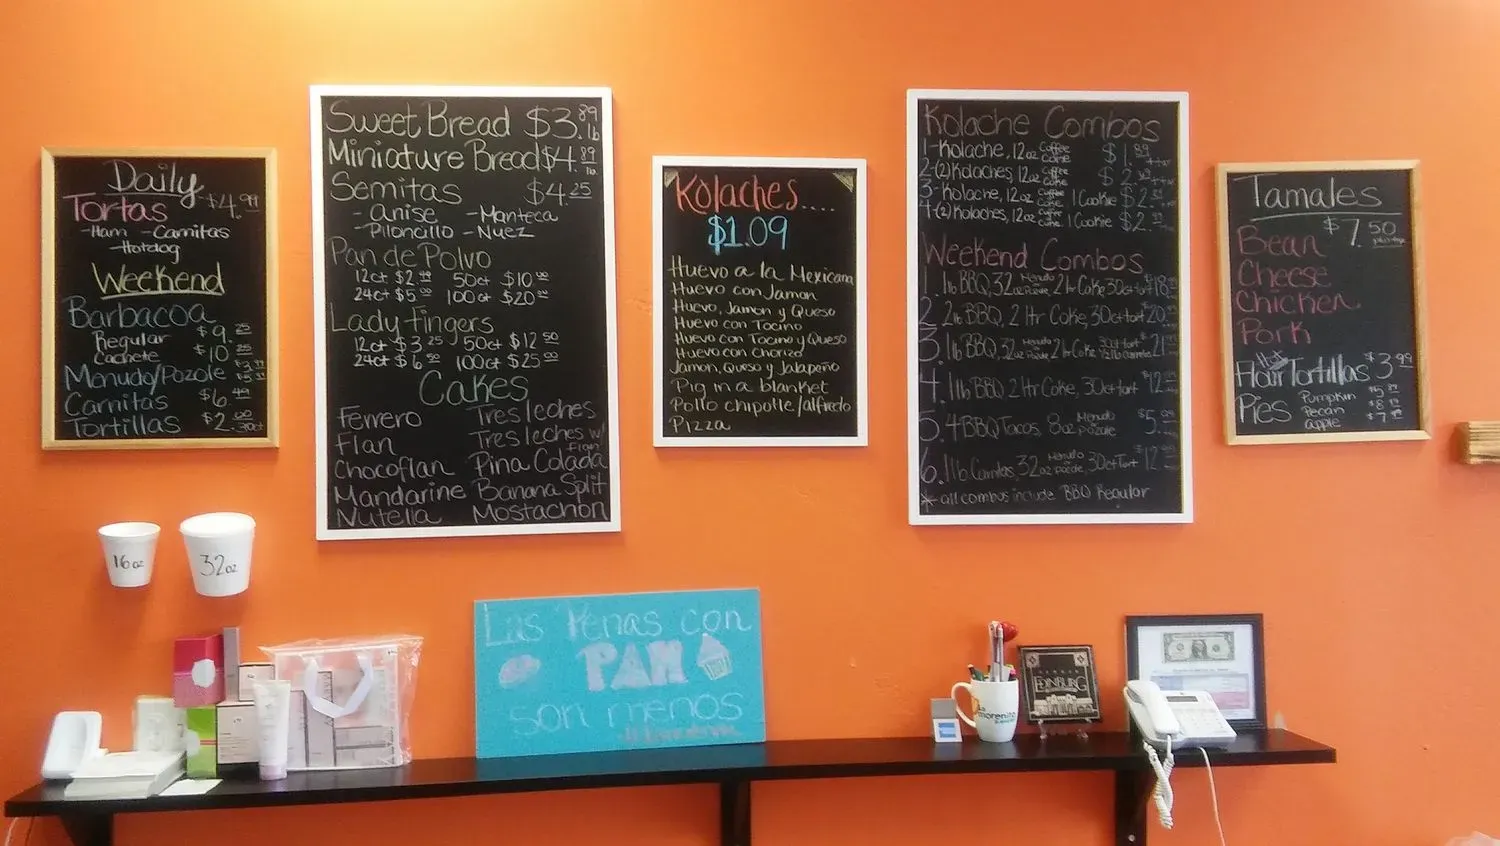 Daily
Tortas $4.99
-Ham -Carnitas
-Hotdog
Weekend
Barbacoa
Regular $9.25
Cachete $10.25
Menudo/Pozole
Carnitas $6.49
Tortillas $2.00 30ct
Sweet Bread $3.89 lb
Miniature Bread $4.89 lb
Semitas $4.25
-Anise -Manteca
-Piloncillo -Nuez
Pan de Polvo
12ct $2.99 50ct $10.00
24ct $5.00 100ct $20.00
Lady Fingers
12ct $3.25 50ct $12.50
24ct $6.50 100ct $25.00
Cakes
Ferrero Tres leches
Flan Tres leches w/ Flan
Chocoflan Pina Colada
Mandarine Banana Split
Nutella Mostachon
Kolaches....
$1.09
Huevo a la Mexicana
Huevo con Jamon
Huevo, Jamon y Queso
Huevo con Tocino
Huevo con Tocino y Queso
Huevo con Chorizo
Jamon, Queso y Jalapeño
Pig in a blanket
Pollo chipotle/alfredo
Pizza
Kolache Combos
1-Kolache, 12oz Coffee Coke $1.89
2-(2) Kolaches, 12oz Coffee Coke
3-Kolache, 12oz Coffee Coke 1 Cookie
4-(2) Kolaches, 12oz Coffee Coke 1 Cookie
Weekend Combos
1. 1lb BBQ, 32oz Menudo Pozole, 2ltr Coke, 30ct Tort
2. 2lb BBQ, 2 ltr Coke, 30ct Tort
3. 1lb BBQ, 32oz Menudo Pozole, 2ltr Coke
4. 1lb BBQ 2 ltr Coke, 30ct Tort
5. 4 BBQ Tacos, 8oz Menudo Pozole
6. 1lb Carnitas, 32oz Menudo Pozole, 30ct Tort
* all combos include BBQ Regular
Tamales
$7.50
Bean
Cheese
Chicken
Pork
Flour Tortillas $3.99
Pies Pumpkin
Pecan
apple
16oz
32oz
Las Penas con
PAN
son menos
morenita
EDINBURG